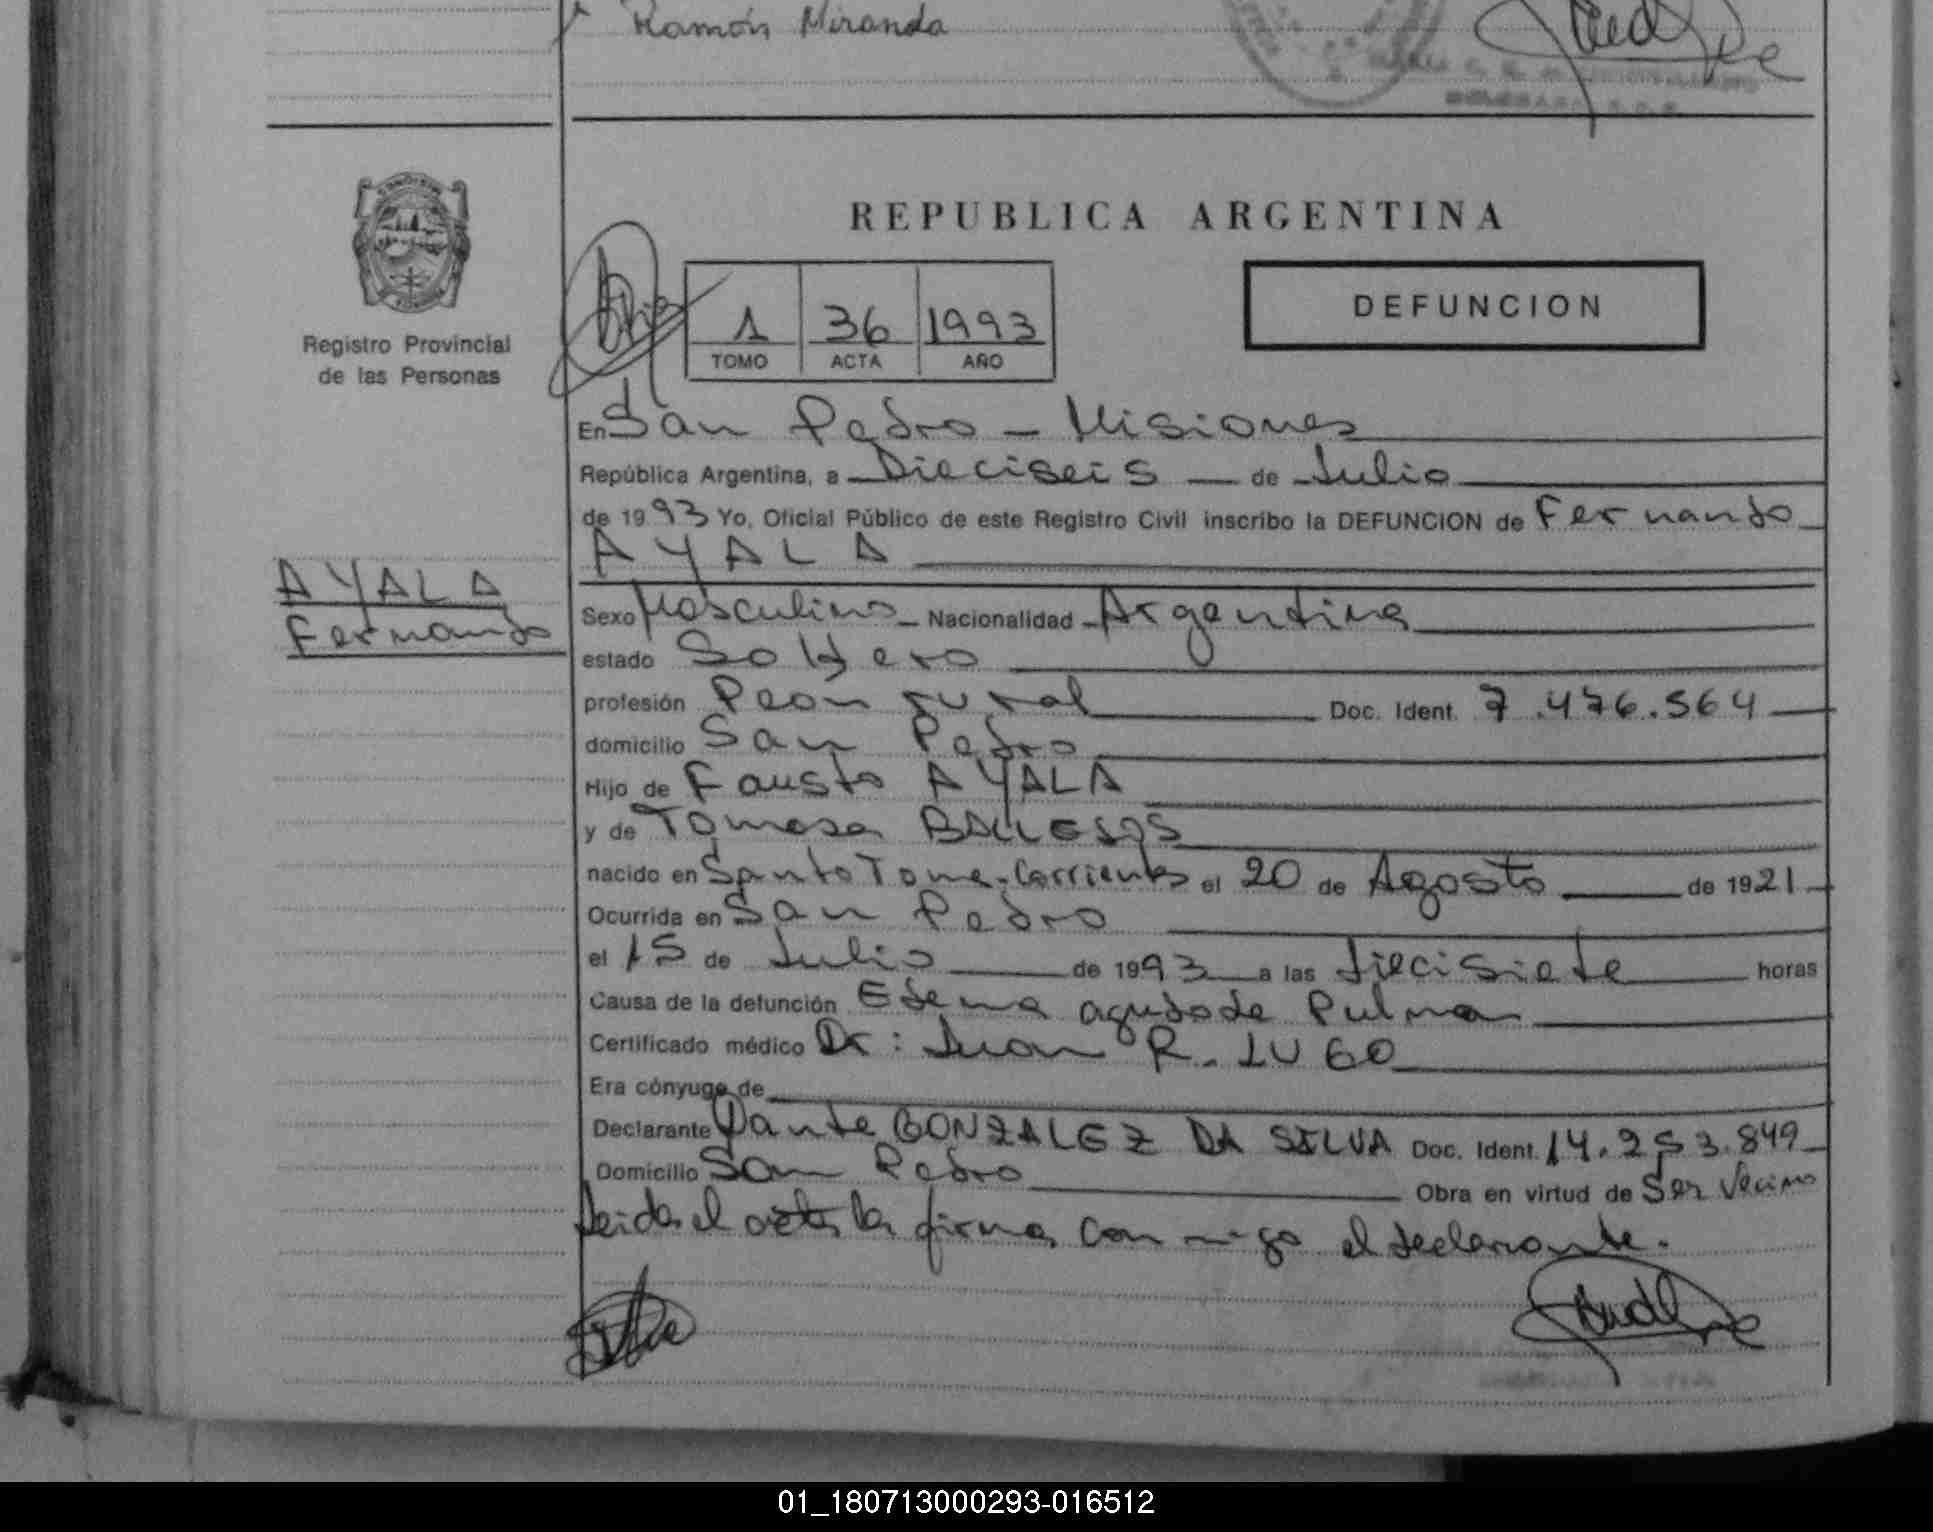 Ramón Miranda
REPUBLICA ARGENTINA
Registro Provincial
de las Personas
1 36 1993
TOMO ACTA AÑO
DEFUNCION
En San Pedro - Misiones
República Argentina, a Dieciseis de Julio
de 1993 Yo, Oficial Público de este Registro Civil inscribo la DEFUNCION de Fernando
AYALA
AYALA
Fernando
Sexo Masculino Nacionalidad Argentina
estado Soltero
profesión Peon rural Doc. Ident. 7.476.564
domicilio San Pedro
Hijo de Fausto AYALA
y de Tomasa
nacido en Santo Tome-Corrientes el 20 de Agosto de 1921
Ocurrida en San Pedro
el 15 de Julio de 1993 a las diecisiete horas
Causa de la defunción Edema agudo de Pulmon
Certificado médico Dr: Juan R. LUGO
Era cónyuge de
Declarante Dante GONZALEZ DA SILVA Doc. Ident. 14.253.849
Domicilio San Pedro Obra en virtud de Ser Vecino
Leida el acta la firma con migo el declarante.
01_180713000293-016512